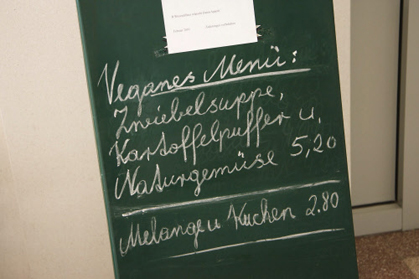 Veganes Menü:
Zwiebelsuppe,
Kartoffelpuffer u,
Naturgemüse 5,20
Melange u Kuchen 2.80